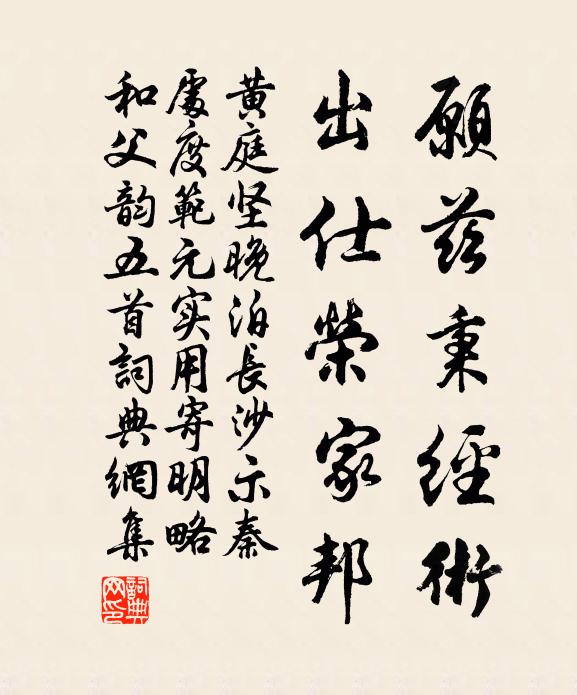 願茲秉經術
出仕榮家邦
黄庭坚晚泊長沙示秦
處度範元实用寄明略
和父韵五首詞典網集
詞典網印